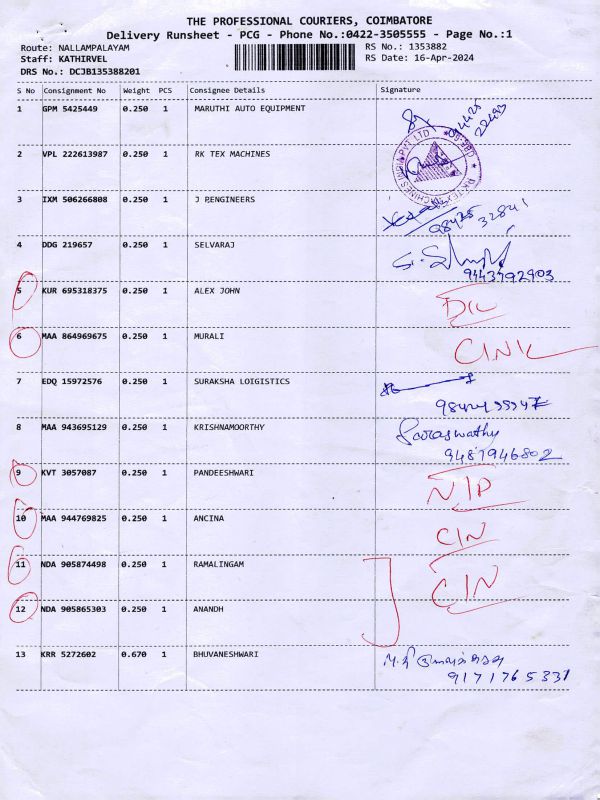 THE PROFESSIONAL COURIERS, COIMBATORE
Delivery Runsheet - PCG - Phone No.:0422-3505555 - Page No.:1
Route: NALLAMPALAYAM RS No.: 1353882
Staff: KATHIRVEL RS Date: 16-Apr-2024
DRS No.: DCJB135388201
S No Consignment No Weight PCS Consignee Details Signature
1 GPM 5425449 0.250 1 MARUTHI AUTO EQUIPMENT
94425
22493
2 VPL 222613987 0.250 1 RK TEX MACHINES
3 IXM 506266808 0.250 1 J P.ENGINEERS
98425 32841
4 DDG 219657 0.250 1 SELVARAJ
9443792903
5 KUR 695318375 0.250 1 ALEX JOHN
6 MAA 864969675 0.250 1 MURALI
7 EDQ 15972576 0.250 1 SURAKSHA LOIGISTICS
8 MAA 943695129 0.250 1 KRISHNAMOORTHY Saraswathy
9487946802
9 KVT 3057087 0.250 1 PANDEESHWARI N/P
10 MAA 944769825 0.250 1 ANCINA CIN
11 NDA 905874498 0.250 1 RAMALINGAM CIN
12 NDA 905865303 0.250 1 ANANDH
13 KRR 5272602 0.670 1 BHUVANESHWARI
9171765331